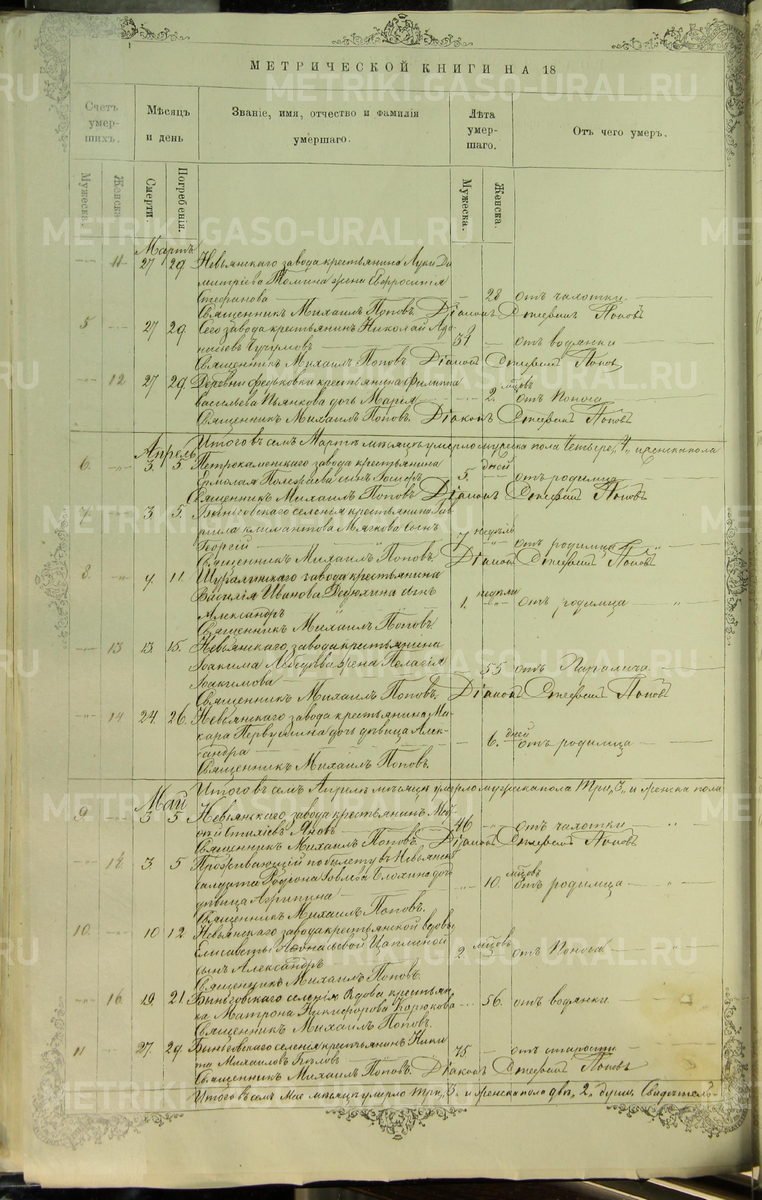 МЕТРИЧЕСКОЙ КНИГИ НА 18
Счетъ умершихъ.
Мѣсяцъ и день
Званіе, имя, отчество и фамилія умершаго.
Лѣта умершаго.
Отъ чего умеръ.
Мужеска.
Женска.
Смерти.
Погребенія.
Мужеска.
Женска.
METRIKI.GASO-URAL.RU
Мартъ
11 27 29 Невьянскаго завода крестьянина Луки Ди
митріева Томина жена Евфросинія
Стефанова 28 отъ чахотки
Священникъ Михаилъ Поповъ. Діаконъ Стефанъ Поповъ
5 27 29 Сего завода крестьянинъ Николай
51 отъ водянки
Священникъ Михаилъ Поповъ. Діаконъ Стефанъ Поповъ
12 27 29 Деревни Федьковки крестьянина Филиппа
Васильева Пьянкова дочь Марія 2. мѣсцовъ отъ поноса
Священникъ Михаилъ Поповъ. Діаконъ Стефанъ Поповъ
Итого въ семъ Мартѣ мѣсяцѣ умерло мужеска пола четыре, 4, и женска пола
Апрель
6. 3 5 Петрокаменскаго завода крестьянина
Ермолая сынъ 5. дней отъ родимца
Священникъ Михаилъ Поповъ Діаконъ Стефанъ Поповъ
7. 3 5. Быньговскаго селенія крестьянина Гав
риила Климантова Мягкова сынъ
Георгій 7 недѣли отъ родимца
Священникъ Михаилъ Поповъ. Діаконъ Стефанъ Поповъ
8. 9 11. Шуралинскаго завода крестьянина
Василія Иванова Дедюхина сынъ
Александръ 1. недѣли отъ родимца
Священникъ Михаилъ Поповъ
13 13 15. Невьянскаго завода крестьянина
Іоакима Лебедева жена Пелагія
Іоакимова 55 отъ Паралича
Священникъ Михаилъ Поповъ. Діаконъ Стефанъ Поповъ
14 24. 26. Невьянскаго завода крестьянина Ма
кара Первушина дочь дѣвица Алек
сандра 6. дней отъ родимца
Священникъ Михаилъ Поповъ.
Итого въ семъ Апрелѣ мѣсяцѣ умерло мужеска пола три, 3. и женска пола
Май
9 3 5 Невьянскаго завода крестьянинъ
46 отъ чахотки
Священникъ Михаилъ Поповъ. Діаконъ Стефанъ Поповъ
3. 5 Проживающій по билету въ Невьянскѣ
солдата Родіона дочь
дѣвица Агрипина 10. мѣсцовъ отъ родимца
Священникъ Михаилъ Поповъ.
10. 10 12 Невьянскаго завода крестьянской вдовы
Елисаветы Афонасьевой Цаплиной
сынъ Александръ 2. мѣсцовъ отъ поноса
Священникъ Михаилъ Поповъ.
16. 19. 21 Быньговскаго селенія вдова крестьян
ка Матрона Никифорова Карюкова 56. отъ водянки
Священникъ Михаилъ Поповъ.
11 27. 29 Быньговскаго селенія крестьянинъ Ники
та Михаиловъ 75. отъ старости
Священникъ Михаилъ Поповъ. Діаконъ Стефанъ Поповъ
Итого въ семъ Мае мѣсяцѣ умерло три, 3. и женска пола двѣ, 2, души. Свидѣтель-